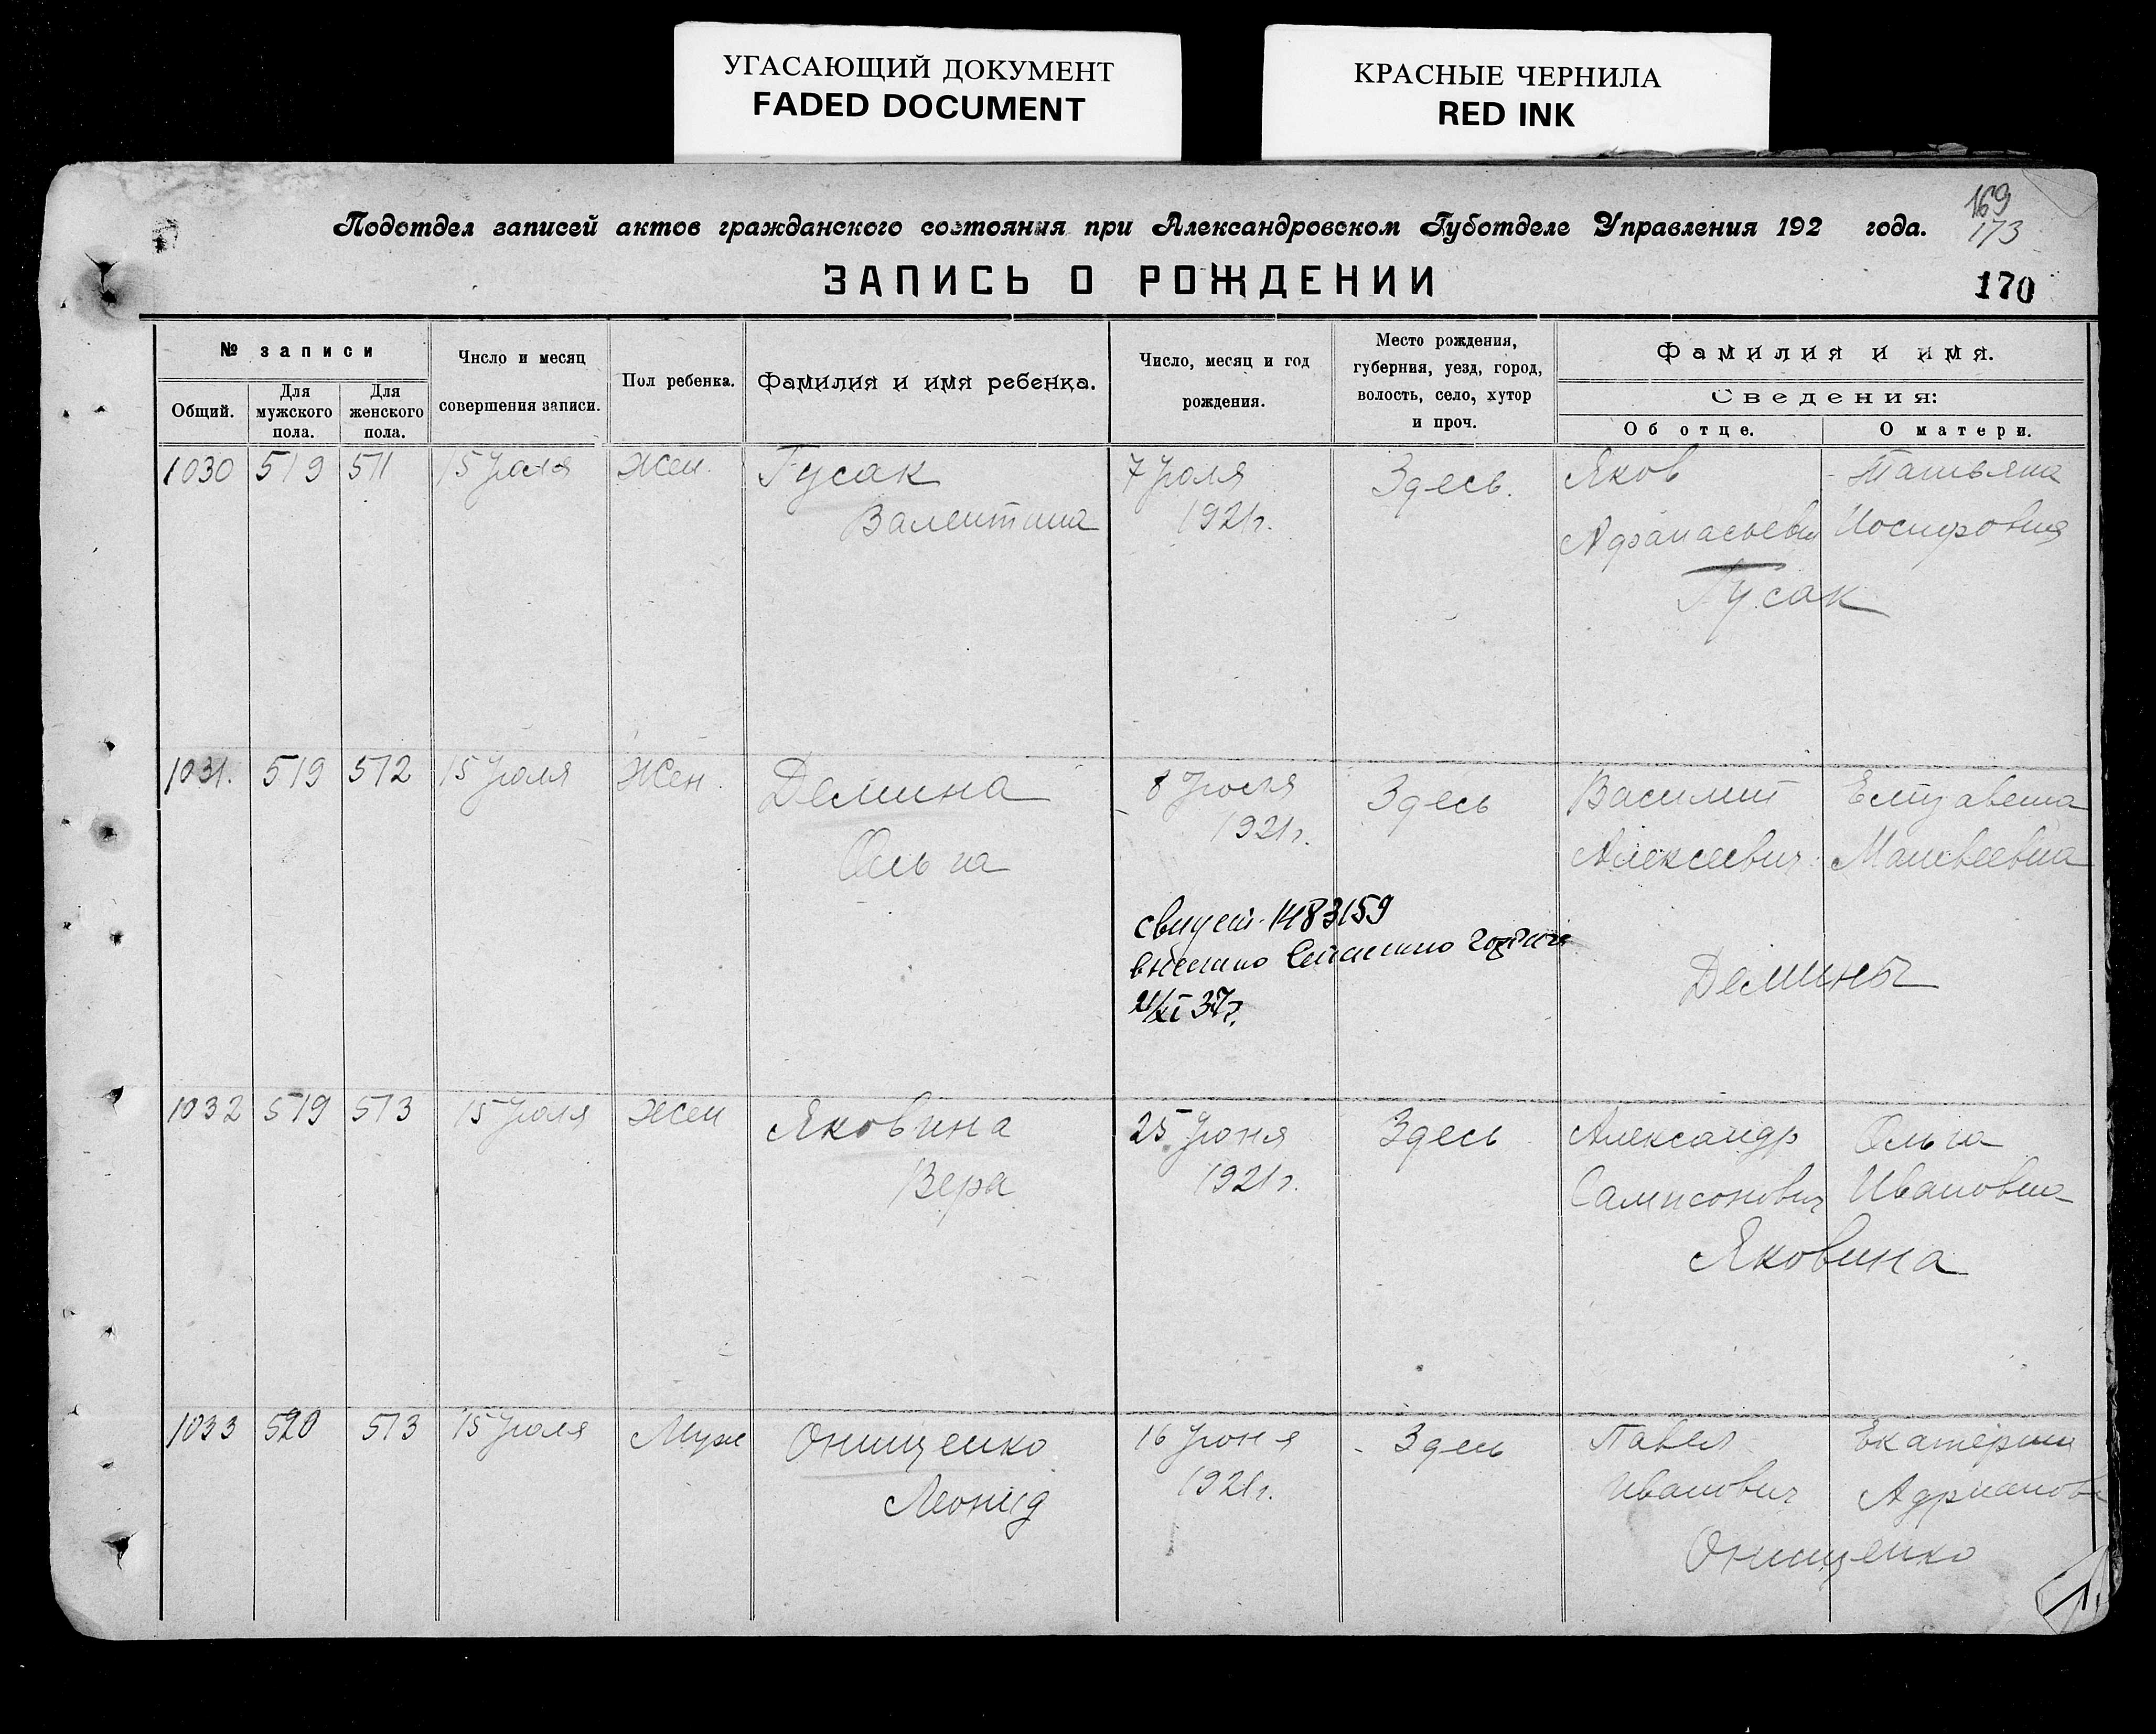 УГАСАЮЩИЙ ДОКУМЕНТ
FADED DOCUMENT
КРАСНЫЕ ЧЕРНИЛА
RED INK
169
173
Подотдел записей актов гражданского состояния при Александровском Губотделе Управления 192 года.
ЗАПИСЬ О РОЖДЕНИИ
170
№ записи
Общий.
Для мужского пола.
Для женского пола.
Число и месяц совершения записи.
Пол ребенка.
Фамилия и имя ребенка.
Число, месяц и год рождения.
Место рождения, губерния, уезд, город, волость, село, хутор и проч.
Фамилия и имя.
Сведения:
Об отце.
О матери.
1030 519 511 15 Июля Жен. Гусак 7 Июля Здесь. Яков Татьяна
Валентина 1921г. Афанасьевич Иосифовна
Гусак
1031. 519 512 15 Июля Жен. Демина 8 Июля Здесь Василий Елизавета
Ольга 1921г. Алексеевич Матвеевна
свидет. 1483159
4/XI 37г.
Демины
1032 519 513 15 Июля Жен Яковина 25 Июня Здесь Александр Ольга
Вера 1921г. Сампсонович Ивановна
Яковина
1033 520 513 15 Июля Муж Онищенко 16 Июня Здесь Павел Екатерина
Леонид 1921г. Иванович Адриановн
Онищенко